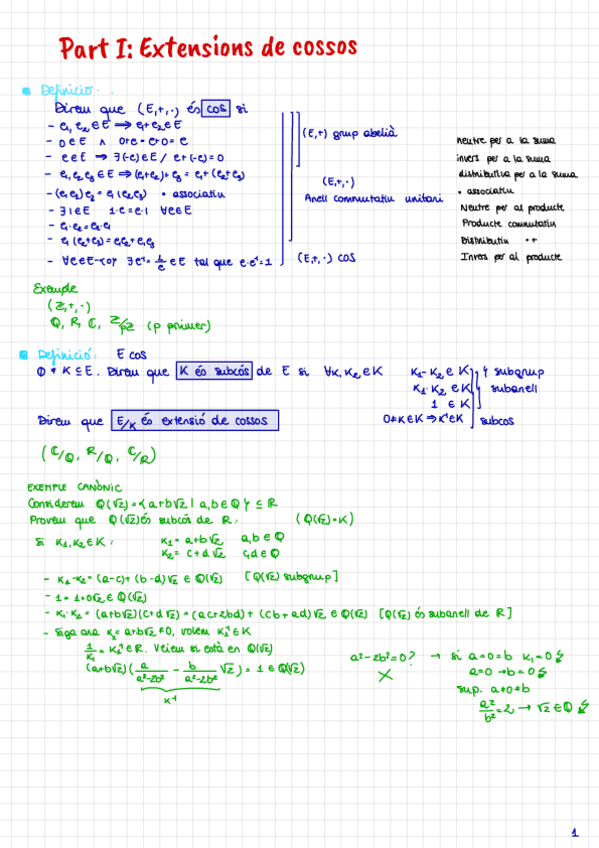 Part I: Extensions de cossos
Definició.
Direm que (E,+,·) és cos si
- e₁, e₂ ∈ E ⟹ e₁+e₂ ∈ E
- 0 ∈ E ∧ 0+e = e+0 = e
- e ∈ E ⟹ ∃(-e) ∈ E / e+(-e) = 0
- e₁, e₂, e₃ ∈ E ⟹ (e₁+e₂)+e₃ = e₁+(e₂+e₃)
- (e₁e₂)e₃ = e₁(e₂e₃) · associatiu
- ∃1 ∈ E 1·e = e·1 ∀e ∈ E
- e₁·e₂ = e₂·e₁
- e₁(e₂+e₃) = e₁e₂+e₁e₃
- ∀e ∈ E-{0} ∃e⁻¹ = 1/e ∈ E tal que e·e⁻¹ = 1
(E,+) grup abelià
(E,+,·)
Anell commutatiu unitari
(E,+,·) cos
neutre per a la suma
invers per a la suma
distributiva per a la suma
· associatiu
Neutre per al producte
Producte commutatiu
Distributiu ·+
Invers per al producte
Exemple
(ℤ,+,·)
ℚ, ℝ, ℂ, ℤ/pℤ (p primer)
Definició. E cos
∅ ≠ K ⊆ E. Direm que K és subcós de E si ∀k₁,k₂ ∈ K
k₁-k₂ ∈ K } subgrup
k₁·k₂ ∈ K subanell
1 ∈ K
0≠k∈K ⟹ k⁻¹∈K subcos
Direm que E/K és extensió de cossos
(ℂ/ℚ, ℝ/ℚ, ℂ/ℝ)
EXEMPLE CANÒNIC
Considerem ℚ(√2) = {a+b√2 | a,b ∈ ℚ} ⊆ ℝ
Provem que ℚ(√2) és subcós de ℝ. (ℚ(√2)=K)
Si k₁,k₂ ∈ K: k₁ = a+b√2 a,b ∈ ℚ
k₂ = c+d√2 c,d ∈ ℚ
- k₁-k₂ = (a-c)+(b-d)√2 ∈ ℚ(√2) [ℚ(√2) subgrup]
- 1 = 1+0√2 ∈ ℚ(√2)
- k₁·k₂ = (a+b√2)(c+d√2) = (ac+2bd)+(cb+ad)√2 ∈ ℚ(√2) [ℚ(√2) és subanell de ℝ]
- Siga ara k₁ = a+b√2 ≠ 0, volem k₁⁻¹ ∈ K
1/k₁ = k₁⁻¹ ∈ ℝ. Veiem si està en ℚ(√2)
(a+b√2)(a/(a²-2b²) - b/(a²-2b²) √2) = 1 ∈ ℚ(√2)
k⁻¹
a²-2b² = 0? → si a=0=b k₁=0 ↯
a=0 → b=0 ↯
sup. a≠0≠b
a²/b² = 2 → √2 ∈ ℚ ↯
1